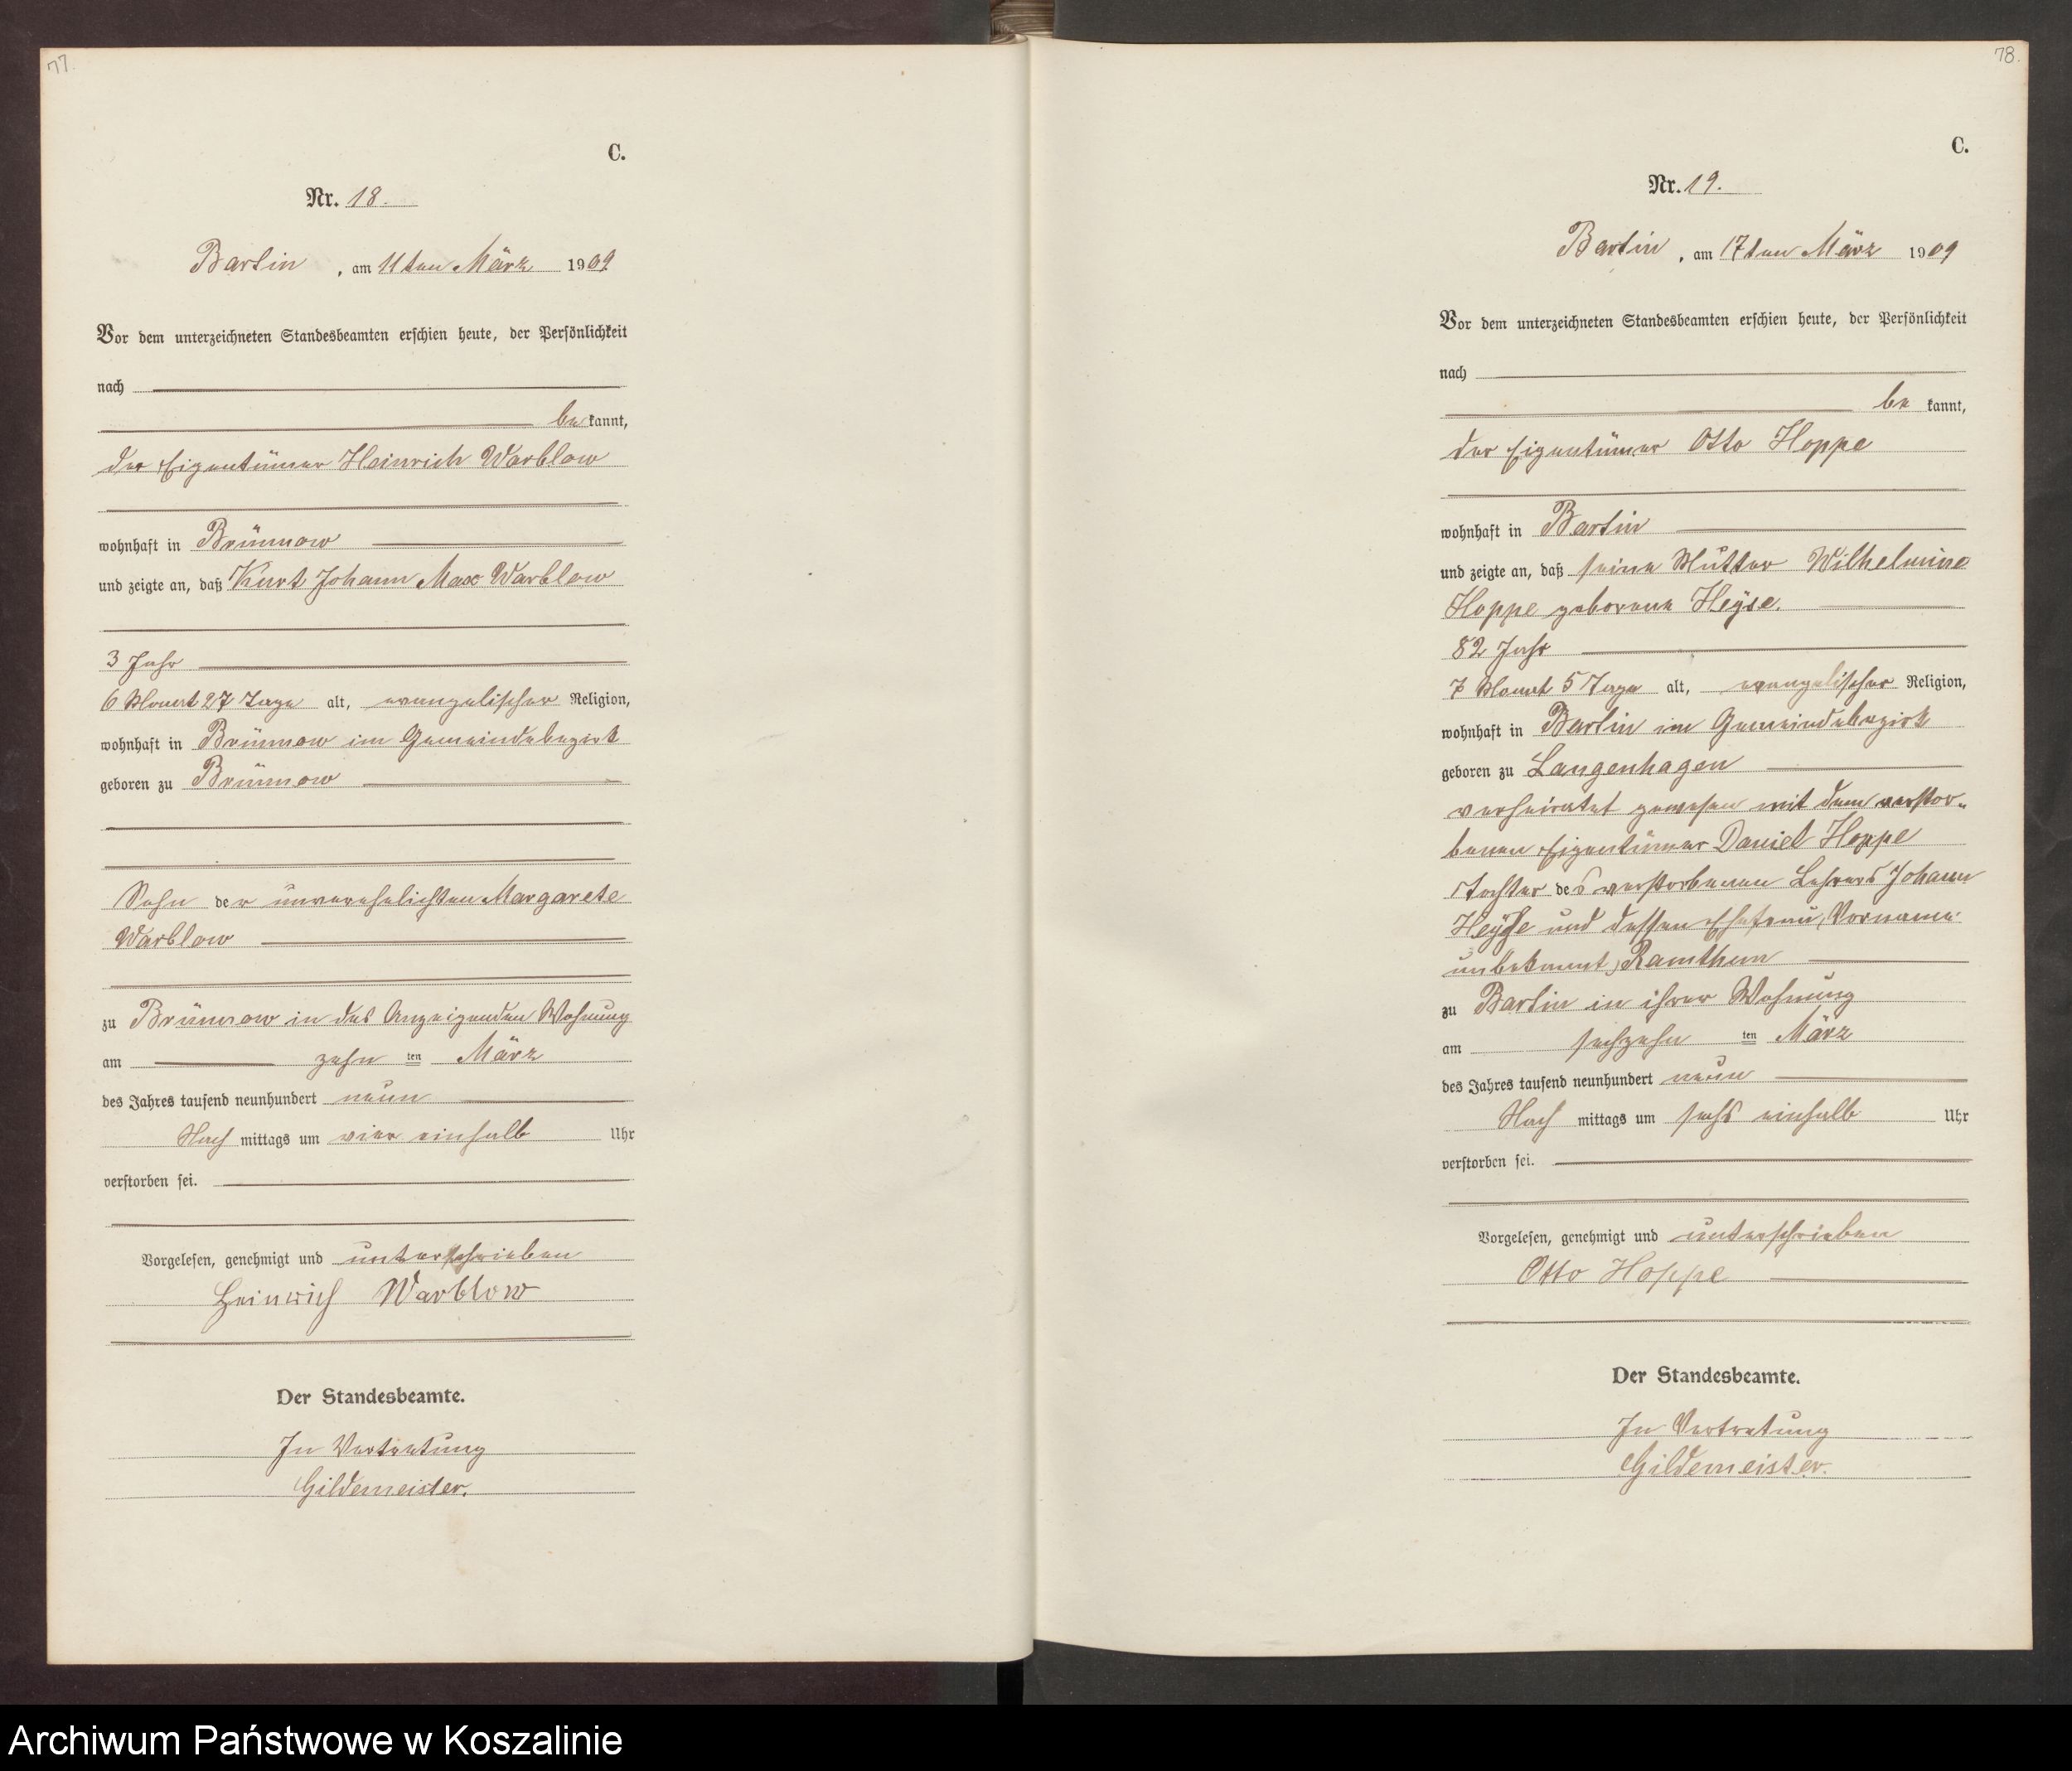 77.
C.
Nr. 18.
Bartin, am 11ten März 1909
Vor dem unterzeichneten Standesbeamten erschien heute, der Persönlichkeit
nach
bekannt,
der Eigentümer Heinrich Warblow
wohnhaft in Brünnow
und zeigte an, daß Kurt Johann Max Warblow
3 Jahr
6 Monat 27 Tage alt, evangelischer Religion,
wohnhaft in Brünnow im Gemeindebezirk
geboren zu Brünnow
Sohn der unverehelichten Margarete
Warblow
zu Brünnow in des Anzeigenden Wohnung
am zehn ten März
des Jahres tausend neunhundert neun
Nachmittags um vier einhalb Uhr
verstorben sei.
Vorgelesen, genehmigt und unterschrieben
Heinrich Warblow
Der Standesbeamte.
In Vertretung
Gildemeister.
78.
C.
Nr. 19.
Bartin, am 17ten März 1909
Vor dem unterzeichneten Standesbeamten erschien heute, der Persönlichkeit
nach
be kannt,
der Eigentümer Otto Hoppe
wohnhaft in Bartin
und zeigte an, daß seine Mutter Wilhelmine
Hoppe geborene Heyse.
82 Jahr
7 Monat 5 Tage alt, evangelischer Religion,
wohnhaft in Bartin im Gemeindebezirk
geboren zu Langenhagen
verheiratet gewesen mit dem verstor-
benen Eigentümer Daniel Hoppe
Tochter des verstorbenen Lehrers Johann
Heyse und dessen Ehefrau, Vorname
unbekannt, Ramthun
zu Bartin in ihrer Wohnung
am sechzehn ten März
des Jahres tausend neunhundert neun
Nach mittags um sechs einhalb Uhr
verstorben sei.
Vorgelesen, genehmigt und unterschrieben
Otto Hoppe
Der Standesbeamte.
In Vertretung
Gildemeister.
Archiwum Państwowe w Koszalinie